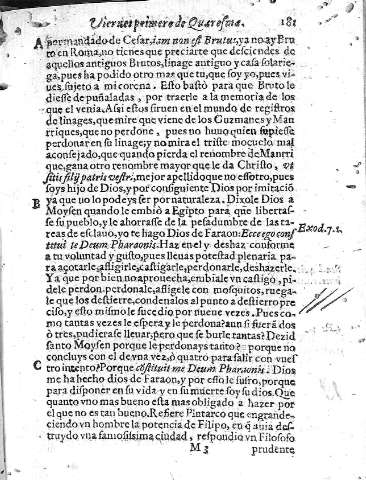 Viernes primero de Quaresma. 181
A por mandado de Cesar, iam non est Brutus, ya no ay Bru
to en Roma, no tienes que preciarte que desciendes de
aquellos antiguos Brutos, linage antiguo y casa solarie-
ga, pues ha podido otro mas que tu, que soy yo, pues vi-
ues sujeto a mi corona. Esto bastò para que Bruto le
diesse de puñaladas, por traerle a la memoria de los
que el venia. Assi estos siruen en el mundo de registros
de linages, que mire que viene de los Guzmanes y Man-
rriques, que no perdone, pues no huuo quien supiesse
perdonar en su linage; y no mira el triste moçuelo mal
aconsejado, que quando pierda el renombre de Manrri
que, gana otro renombre mayor que le da Christo, vt
sitis filij patris vestri, mejor apellido que no essotro, pues
soys hijo de Dios, y por consiguiente Dios por imitaciõ
B ya que no lo podeys ser por naturaleza. Dixole Dios a
Moysen quando le embiò a Egipto para que libertas-
se su pueblo, y le ahorrasse de la pesadumbre de las ta-
reas de esclauo, yo te hago Dios de Faraon: Ecce ego con
stitui te Deum Pharaonis. Haz en el y deshaz conforme
Exod. 7. 1.
a tu voluntad y gusto, pues lleuas potestad plenaria pa-
ra açotarle, afligirle, castigarle, perdonarle, deshazerle.
Ya que por bien no aprouecha, embiale vn castigo, pi-
dele perdon, perdonale, afligele con mosquitos, ruega-
le que los destierre, condenalos al punto a destierro pre
ciso, y esto mismo le sucedio por nueue vezes. Pues co-
mo tantas vezes le espera y le perdona? aun si fuerà dos
ò tres, pudierase lleuar, pero que se burle tantas? Dezid
santo Moysen porque le perdonays tanto? porque no
concluys con el de vna vez, ò quatro para salir con vues
C tro intento? Porque cõstituit me Deum Pharaonis. Dios
me ha hecho dios de Faraon, y por esso le sufro, porque
para disponer en su vida y en su muerte soy su dios. Que
quanto vno mas bueno està mas obligado a hazer por
el que no es tan bueno. Refiere Plutarco que engrande-
ciendo vn hombre la potencia de Filipo, en q̃ auia des-
truydo vna famosissima ciudad, respondio vn Filosofo
M 3 prudente